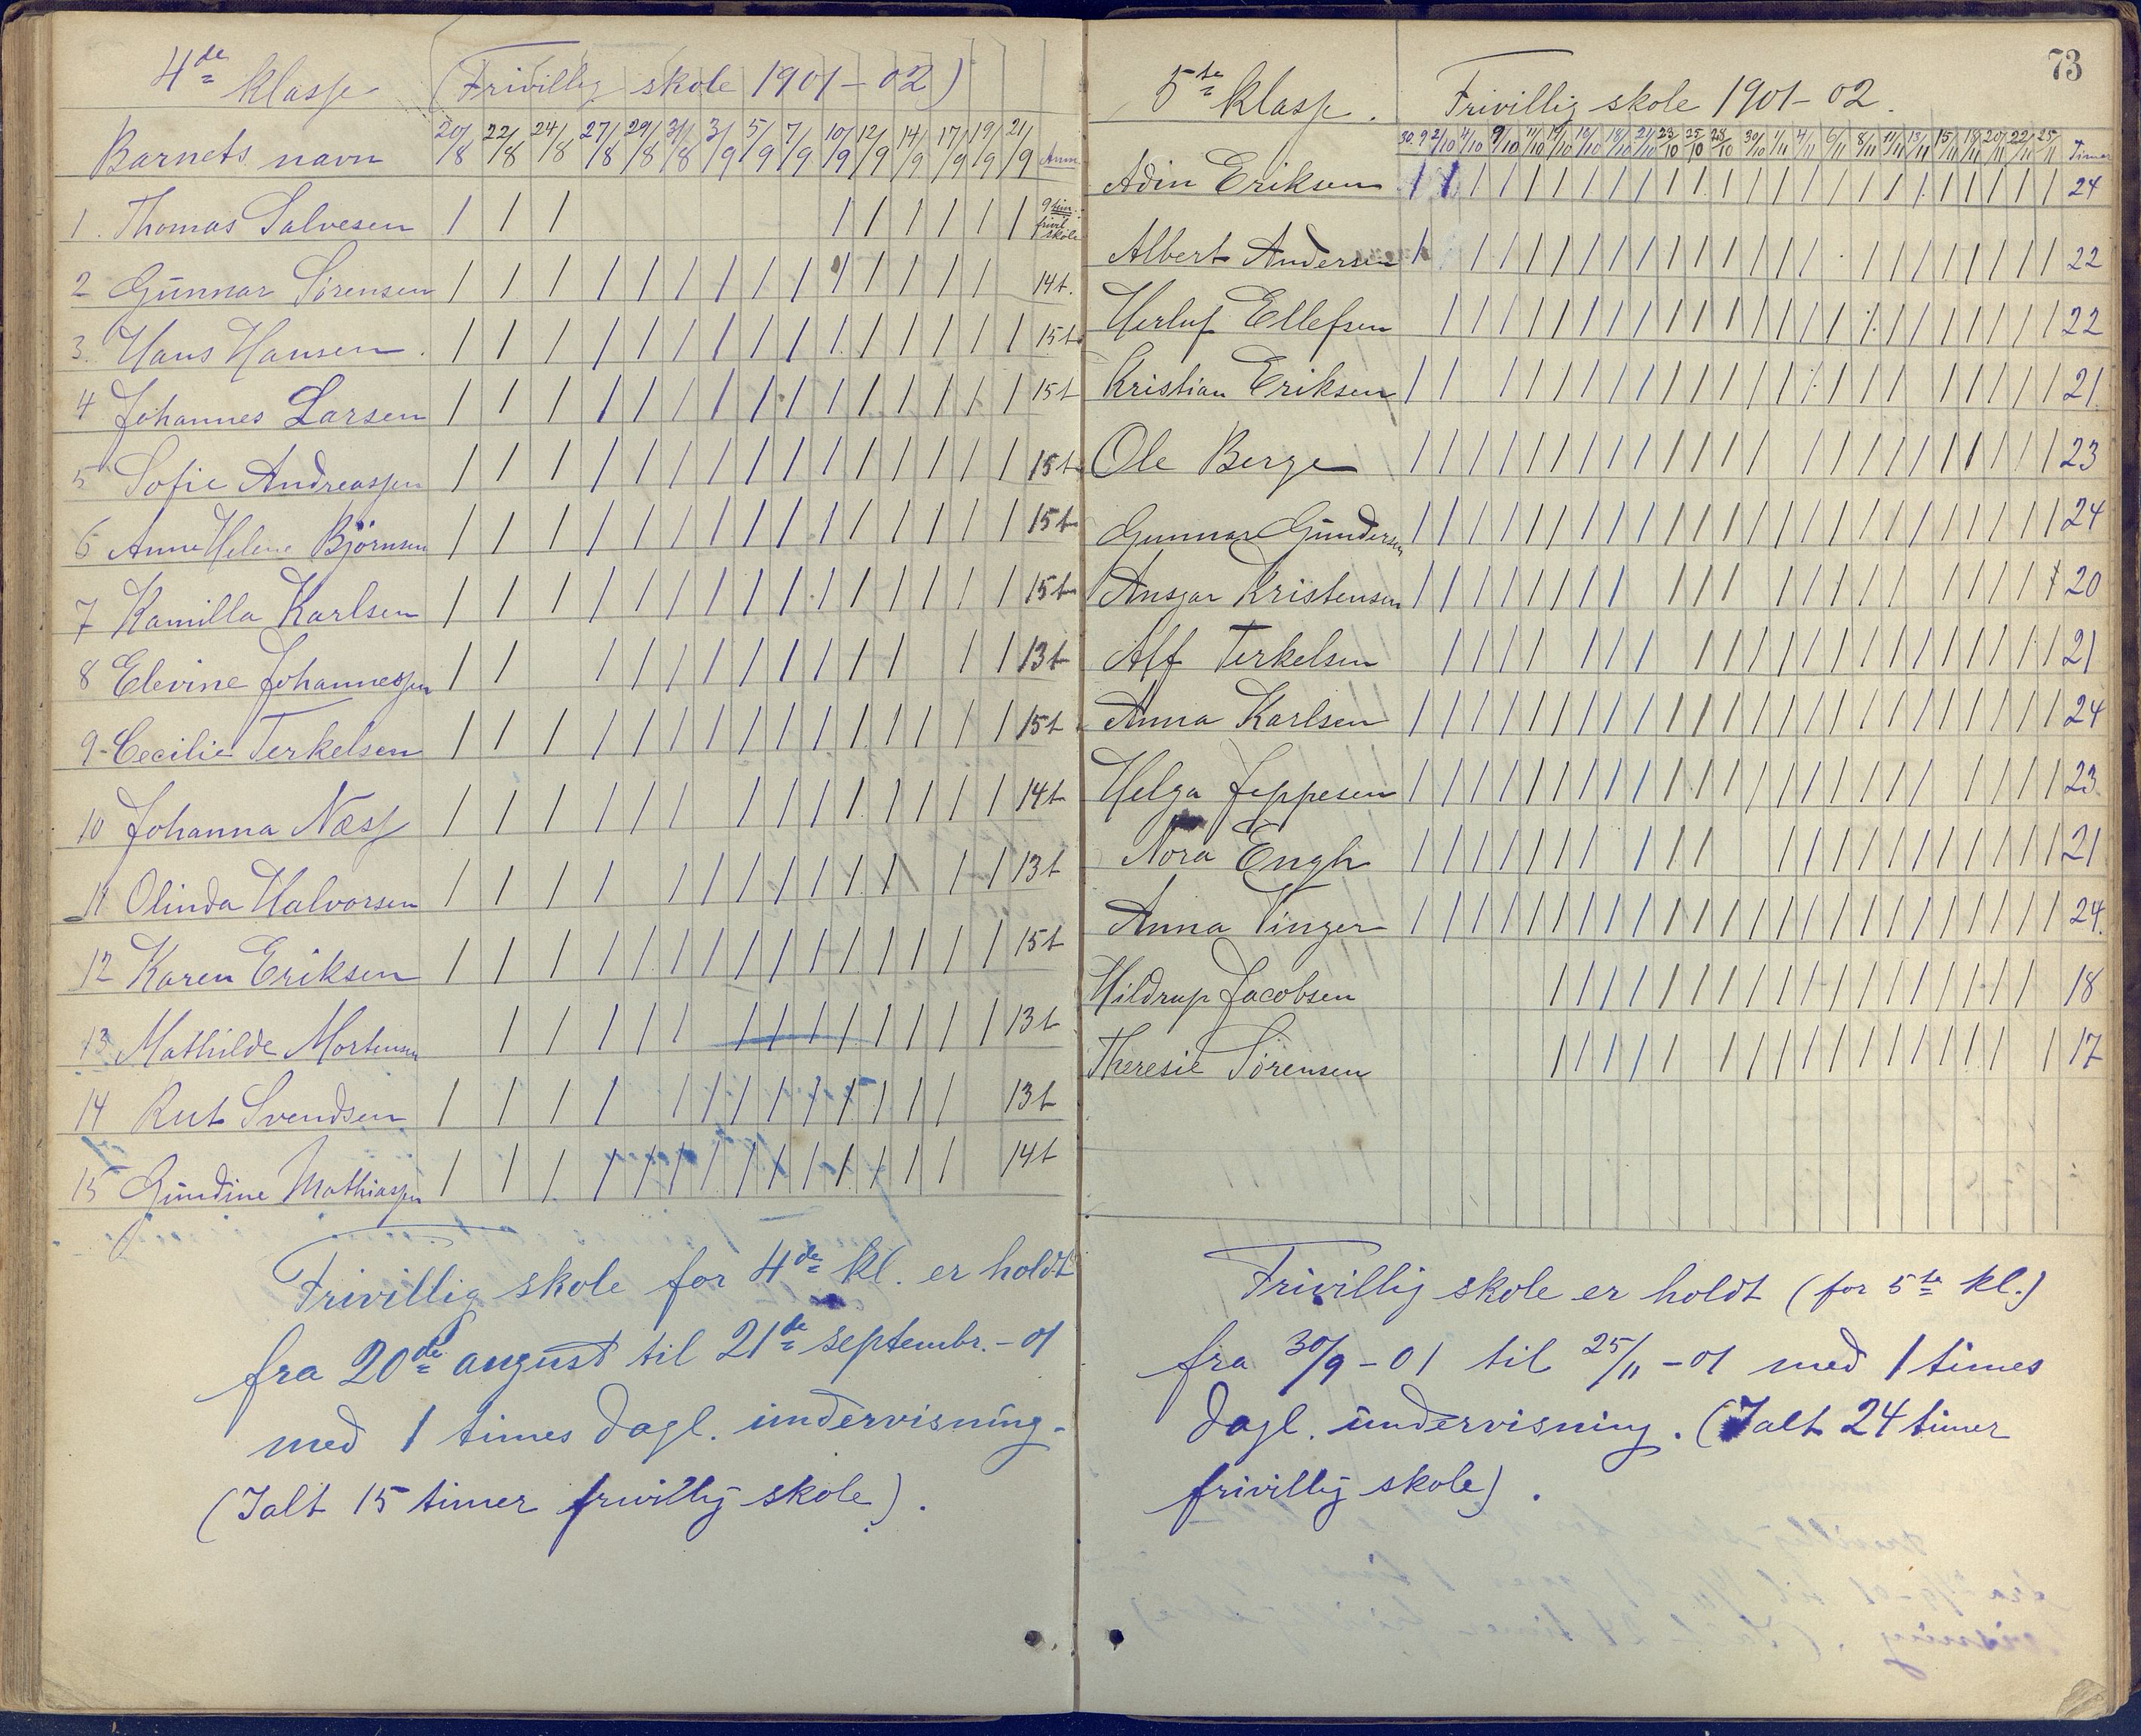 4de klasse (Frivillig skole 1901–02)
Barnets navn 20/8 22/8 24/8 27/8 29/8 31/8 3/9 5/9 7/9 10/9 12/9 14/9 17/9 19/9 21/9 Anm.
1. Thomas Salvesen / / / / / / / / / 9 tim. frivil. skole
2 Gunnar Sørensen / / / / / / / / / / / / / / 14 t.
3. Hans Hansen. / / / / / / / / / / / / / / / 15 t
4 Johannes Larsen / / / / / / / / / / / / / / / 15 t
5 Sofie Andreassen / / / / / / / / / / / / / / / 15 t
6 Anne Helene Björnsen / / / / / / / / / / / / / / / 15 t
7 Kamilla Karlsen / / / / / / / / / / / / / / / 15 t
8 Elevine Johannessen / / / / / / / / / / / / / 13 t
9 - Cecilie Terkelsen / / / / / / / / / / / / / / / 15 t
10 Johanna Næss / / / / / / / / / / / / / / 14 t
11 Olinda Halvorsen / / / / / / / / / / / / / 13 t
12 Karen Eriksen / / / / / / / / / / / / / / / 15 t
13 Mathilde Mortensen / / / / / / / / / / / / / 13 t
14 Rut Svendsen / / / / / / / / / / / / / 13 t
15 Gundine Mathiassen / / / / / / / / / / / / / / 14 t
Frivillig skole for 4de kl. er holdt
fra 20de august til 21de septembr. – 01
med 1 times dagl. undervisning.
(Ialt 15 timer frivillig skole).
73
5te klasse. Frivillig skole 1901–02.
30.9 2/10 4/10 9/10 11/10 14/10 16/10 18/10 21/10 23/10 25/10 28/10 30/10 1/11 4/11 6/11 8/11 11/11 13/11 15/11 18/11 20/11 22/11 25/11 Timer
Adin Eriksen / / / / / / / / / / / / / / / / / / / / / / / / 24
Albert Andersen / / / / / / / / / / / / / / / / / / / / / / 22
Herluf Ellefsen / / / / / / / / / / / / / / / / / / / / / / 22
Kristian Eriksen / / / / / / / / / / / / / / / / / / / / / 21
Ole Berge / / / / / / / / / / / / / / / / / / / / / / / 23
Gunnar Gundersen / / / / / / / / / / / / / / / / / / / / / / / / 24
Ansgar Kristensen / / / / / / / / / / / / / / / / / / / / 20
Alf Terkelsen / / / / / / / / / / / / / / / / / / / / / 21
Anna Karlsen / / / / / / / / / / / / / / / / / / / / / / / / 24
Helga Jeppesen / / / / / / / / / / / / / / / / / / / / / / / 23
Nora Engh / / / / / / / / / / / / / / / / / / / / / 21
Anna Vinger / / / / / / / / / / / / / / / / / / / / / / / / 24.
Hildrup Jacobsen / / / / / / / / / / / / / / / / / / 18
Theresie Sørensen / / / / / / / / / / / / / / / / / 17
Frivillig skole er holdt (for 5te kl.)
fra 30/9 – 01 til 25/11 – 01 med 1 times
dagl. undervisning. (Ialt 24 timer
frivillig skole).